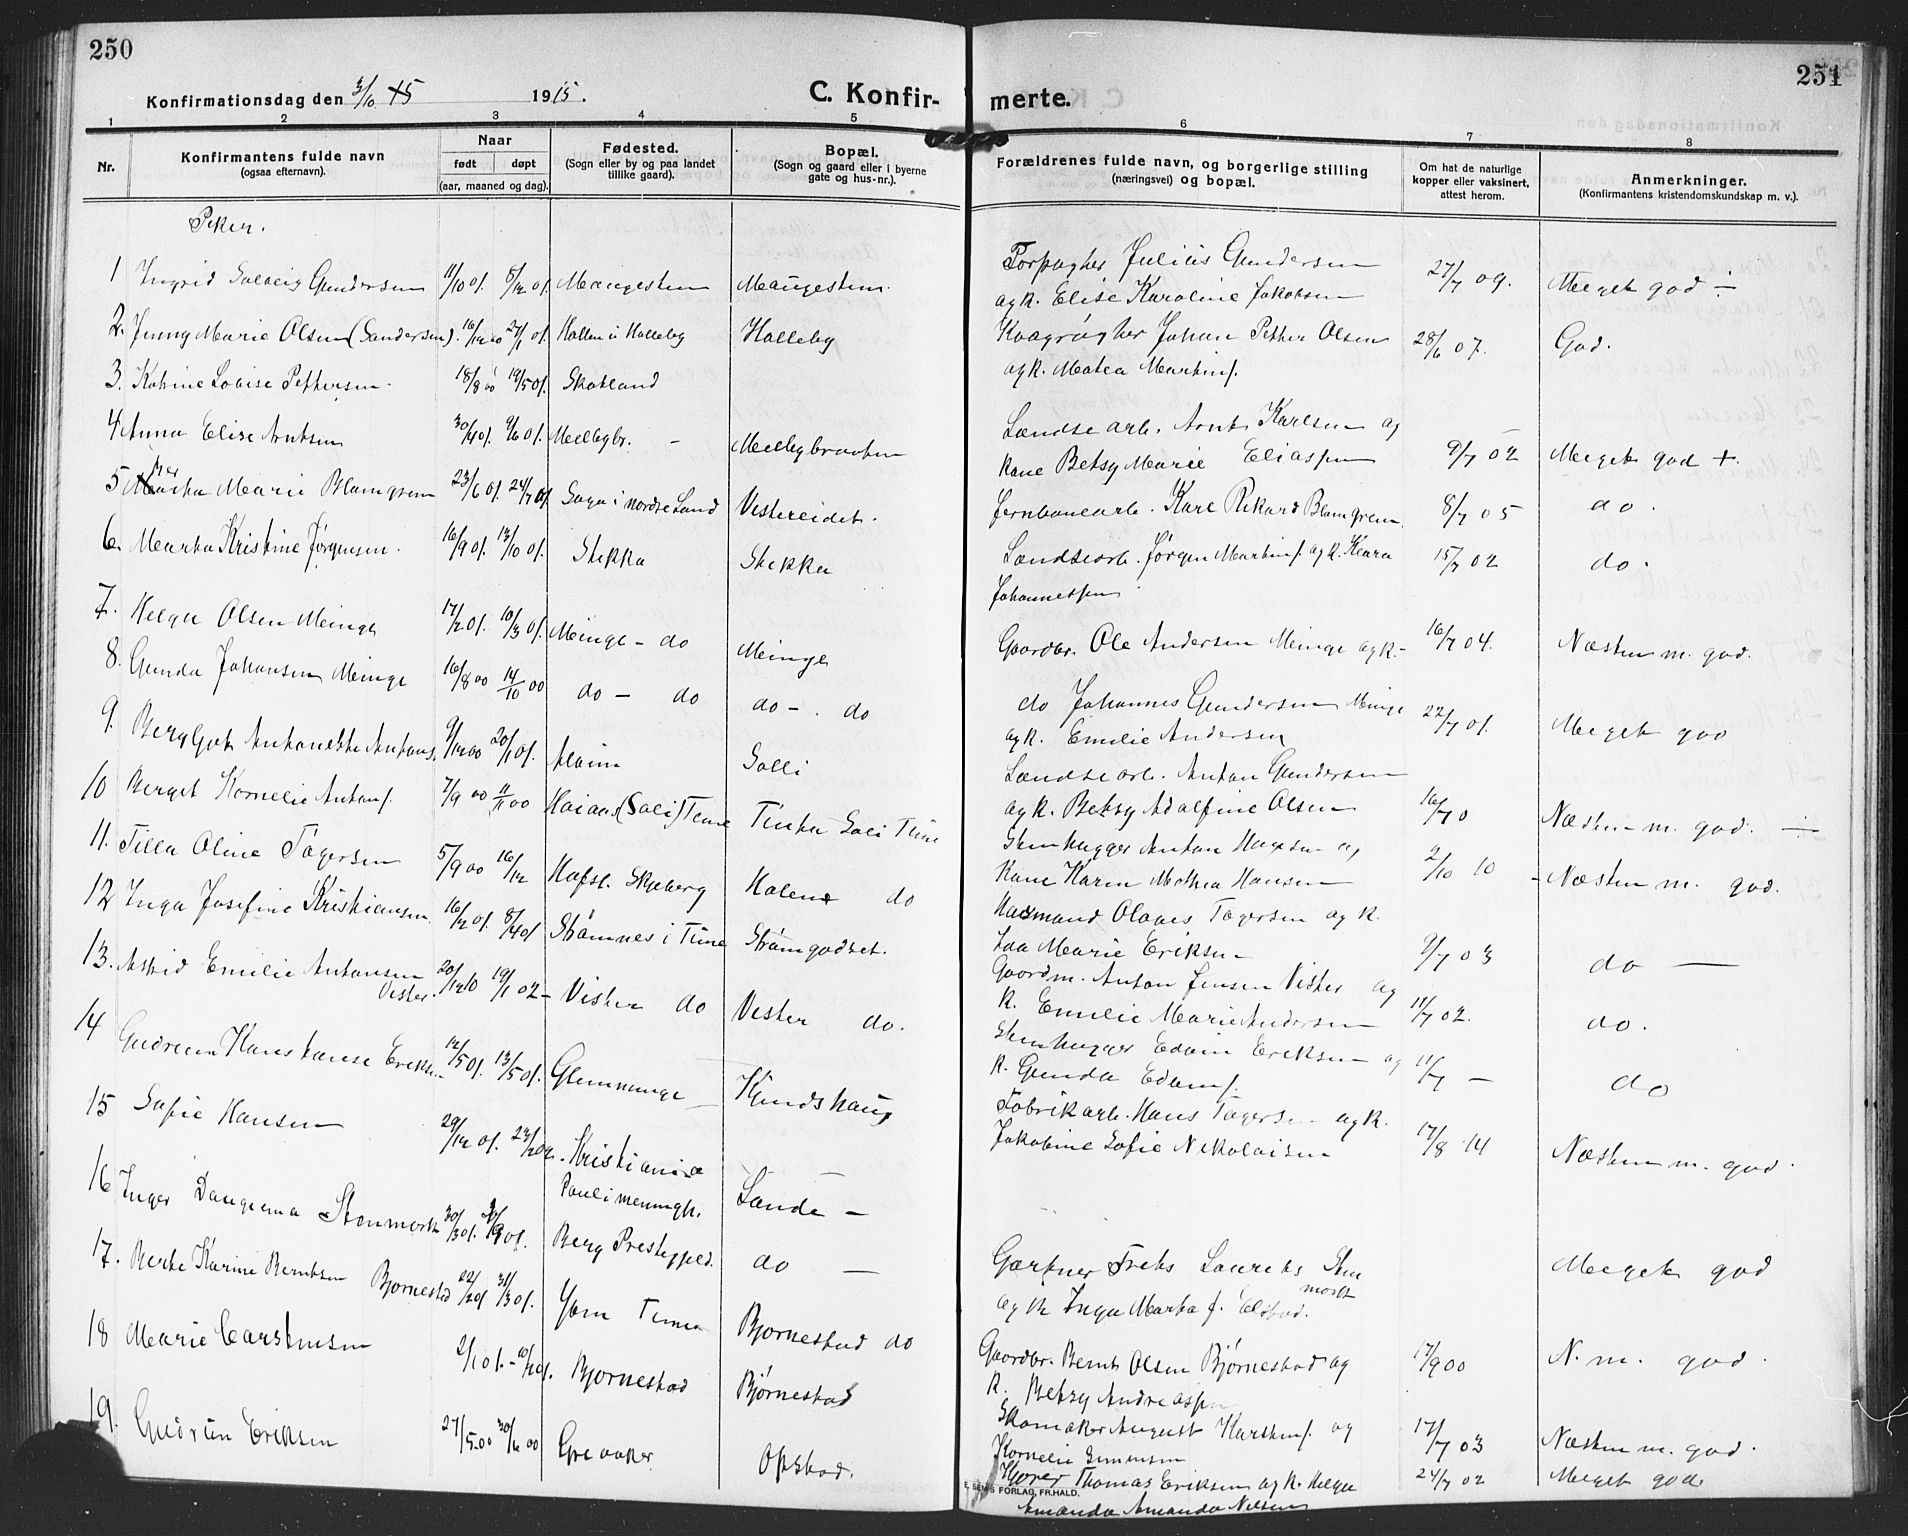 250
Konfirmationsdag den 3/10 15 1915.
C. Konfir-
1 2 3 4 5
Nr.
Konfirmantens fulde navn
(ogsaa efternavn).
Naar
født døpt
(aar, maaned og dag).
Fødested.
(Sogn eller by og paa landet
tillike gaard).
Bopæl.
(Sogn og gaard eller i byerne
gate og hus-nr.).
Piker.
1 Ingrid Solveig Gundersen 11/10 01. 8/12 01. Maugesten Maugesten.
2. Jenny Marie Olsen (Sandersen). 16/12 00 27/1 01. Hallen i Halleby Halleby
3. Katrine Lovise Pettersen. 18/8 00 19/5 01. Skotland
4 Anna Elise Arntsen 30/4 01. 9/6 01. Melleby br. - Mellebybraaten
5 Marie Blomgren 23/6 01. 24/7 01. i nordre Land Vestereidet.
6. Marta Kristine Jørgensen. 16/9 01. 13/10 01. Stikka Stikka
7. Helga Olsen Meinge 17/2 01. 10/3 01. Meinge - do Meinge
8. Gunda Johansen Meinge 16/8 00 14/10 00 do - do do - . do
9. Bergljot Antonette Antons. 9/12 00 20/1 01. Alvim Solli
10 Berget Kornelie Antons. 7/9 00 11/11 00 (Soli) Tune Soli Tune
11. Tilla Oline Tagersen 5/9 00 16/12 Hafsl. Skjeberg Holene do
12 Inga Josefine Kristiansen. 16/2 01. 8/4 01 Strømnes i Tune Strømgodset.
13. Astrid Emilie Antonsen
Vister. 20/12 10 19/1 02 - Vister do Vister do.
14 Gudrun Konstanse Eriksen 12/5 01. 13/5 01. Glemminge Hundskaug
15 Sofie Hansen 29/12 01. Kristiania
Pauli meningh. Sande -
16 Inger Dagema Stenmork 30/3 01. 9 01. Berg Prestegjeld. do -
17. Berte Karine Berntsen Bjørnestad 22/2 01 31/3 01. Tune Bjørnestad do
18 Marie Carstensen 2/1 01. - 10/ 01. Bjørnestad Bjørnestad
19. Gudrun Eriksen 27/5 00 30/6 00 Greaaker Opstad.
251
merte.
6 7 8
Forældrenes fulde navn, og borgerlige stilling
(næringsvei) og bopæl.
Om hat de naturlige
kopper eller vaksinert,
attest herom.
Anmerkninger.
(Konfirmantens kristendomskundskap m. v.).
Forpagter Julius Gundersen
og k. Elise Karoline Jakobsen 27/7 09. Meget god
Johan Petter Olsen
og k. Matea Martins. 28/6 07. God.
Landsearb. Arnt Karlsen og
kone Betsy Marie Eliassen 9/7 02 Meget god +.
Jernbanearb. Kare Rikard Blomgren. 8/7 05 do.
Landsearb. Jørgen Martins. og k. Klara
Johannessen 15/7 02 do.
Gaardbr. Ole Andersen Meinge og k. - 16/7 04. Næsten m. god.
do Johannes Gundersen Meinge
og k. Emilie Andersen 22/7 01. Meget god
Landsearb. Anton Gundersen
og k. Betsy Adolfine Olsen 16/7 0 Næsten m. god.
Stenhugger Anton Hansen og
Kone Karen Mathea Hansen 2/10 10 - Næsten m. god.
Husmand Olaves Tagersen og k.
Marie Eriksen - 9/7 03 do -
Gaardm. Anton Jensen Vister og
k. Emilie Marie Andersen 11/7 02. do.
Stenhugger Edvin Eriksen og
k. Gunda Edams. 11/7 - do
Fabrikarb. Hans Tagersen og k.
Jakobine Sofie Nikolaisen 17/8 14 Næsten m. god.
Gartner Laurets Sten
mork
og k Inga Marta f. Elstad. Meget god
Gaardbr. Bernt Olsen Bjørnestad og
k. Betsy Andreassen 17/9 00 N. m. god.
Skomaker August Karstens. og
Kornelie Simensen 17/7 03 Næsten m. god.
Thomas Eriksen og k. Helga
Amanda Amanda Nilsen 24/7 02 Meget god
E. SEMS FORLAG, FR.HALD.